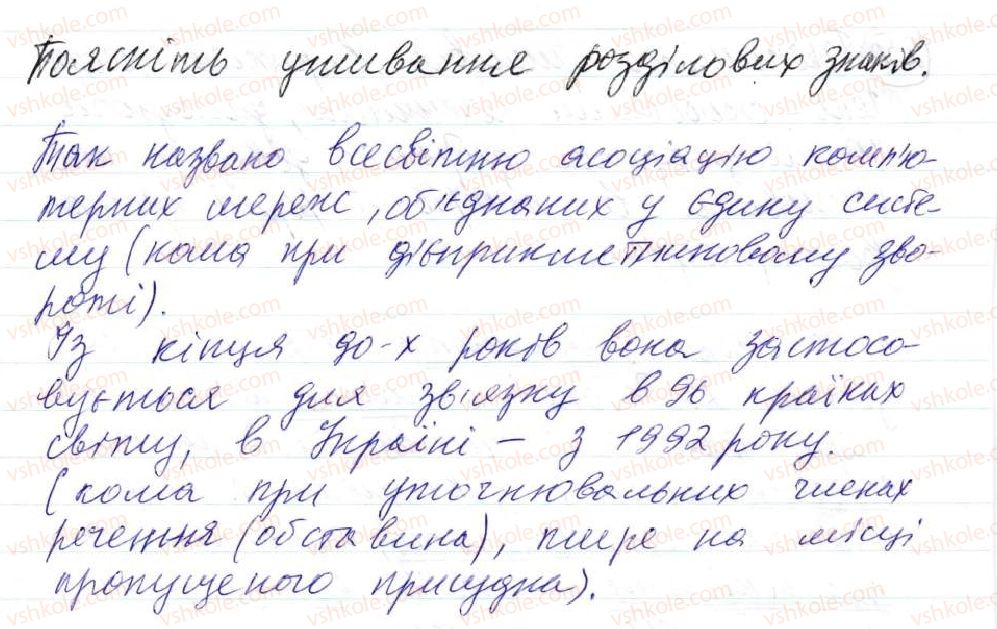 Поясніть уживання розділових знаків.
Так названо всесвітню асоціацію комп'ю-
терних мереж, об'єднаних у єдину систе-
му (кома при дієприкметниковому зво-
роті).
Із кінця 90-х років вона застосо-
вується для зв'язку в 96 країнах
світу, в Україні – з 1992 року.
(кома при уточнювальних членах
речення (обставина), тире на місці
пропущеного присудка).